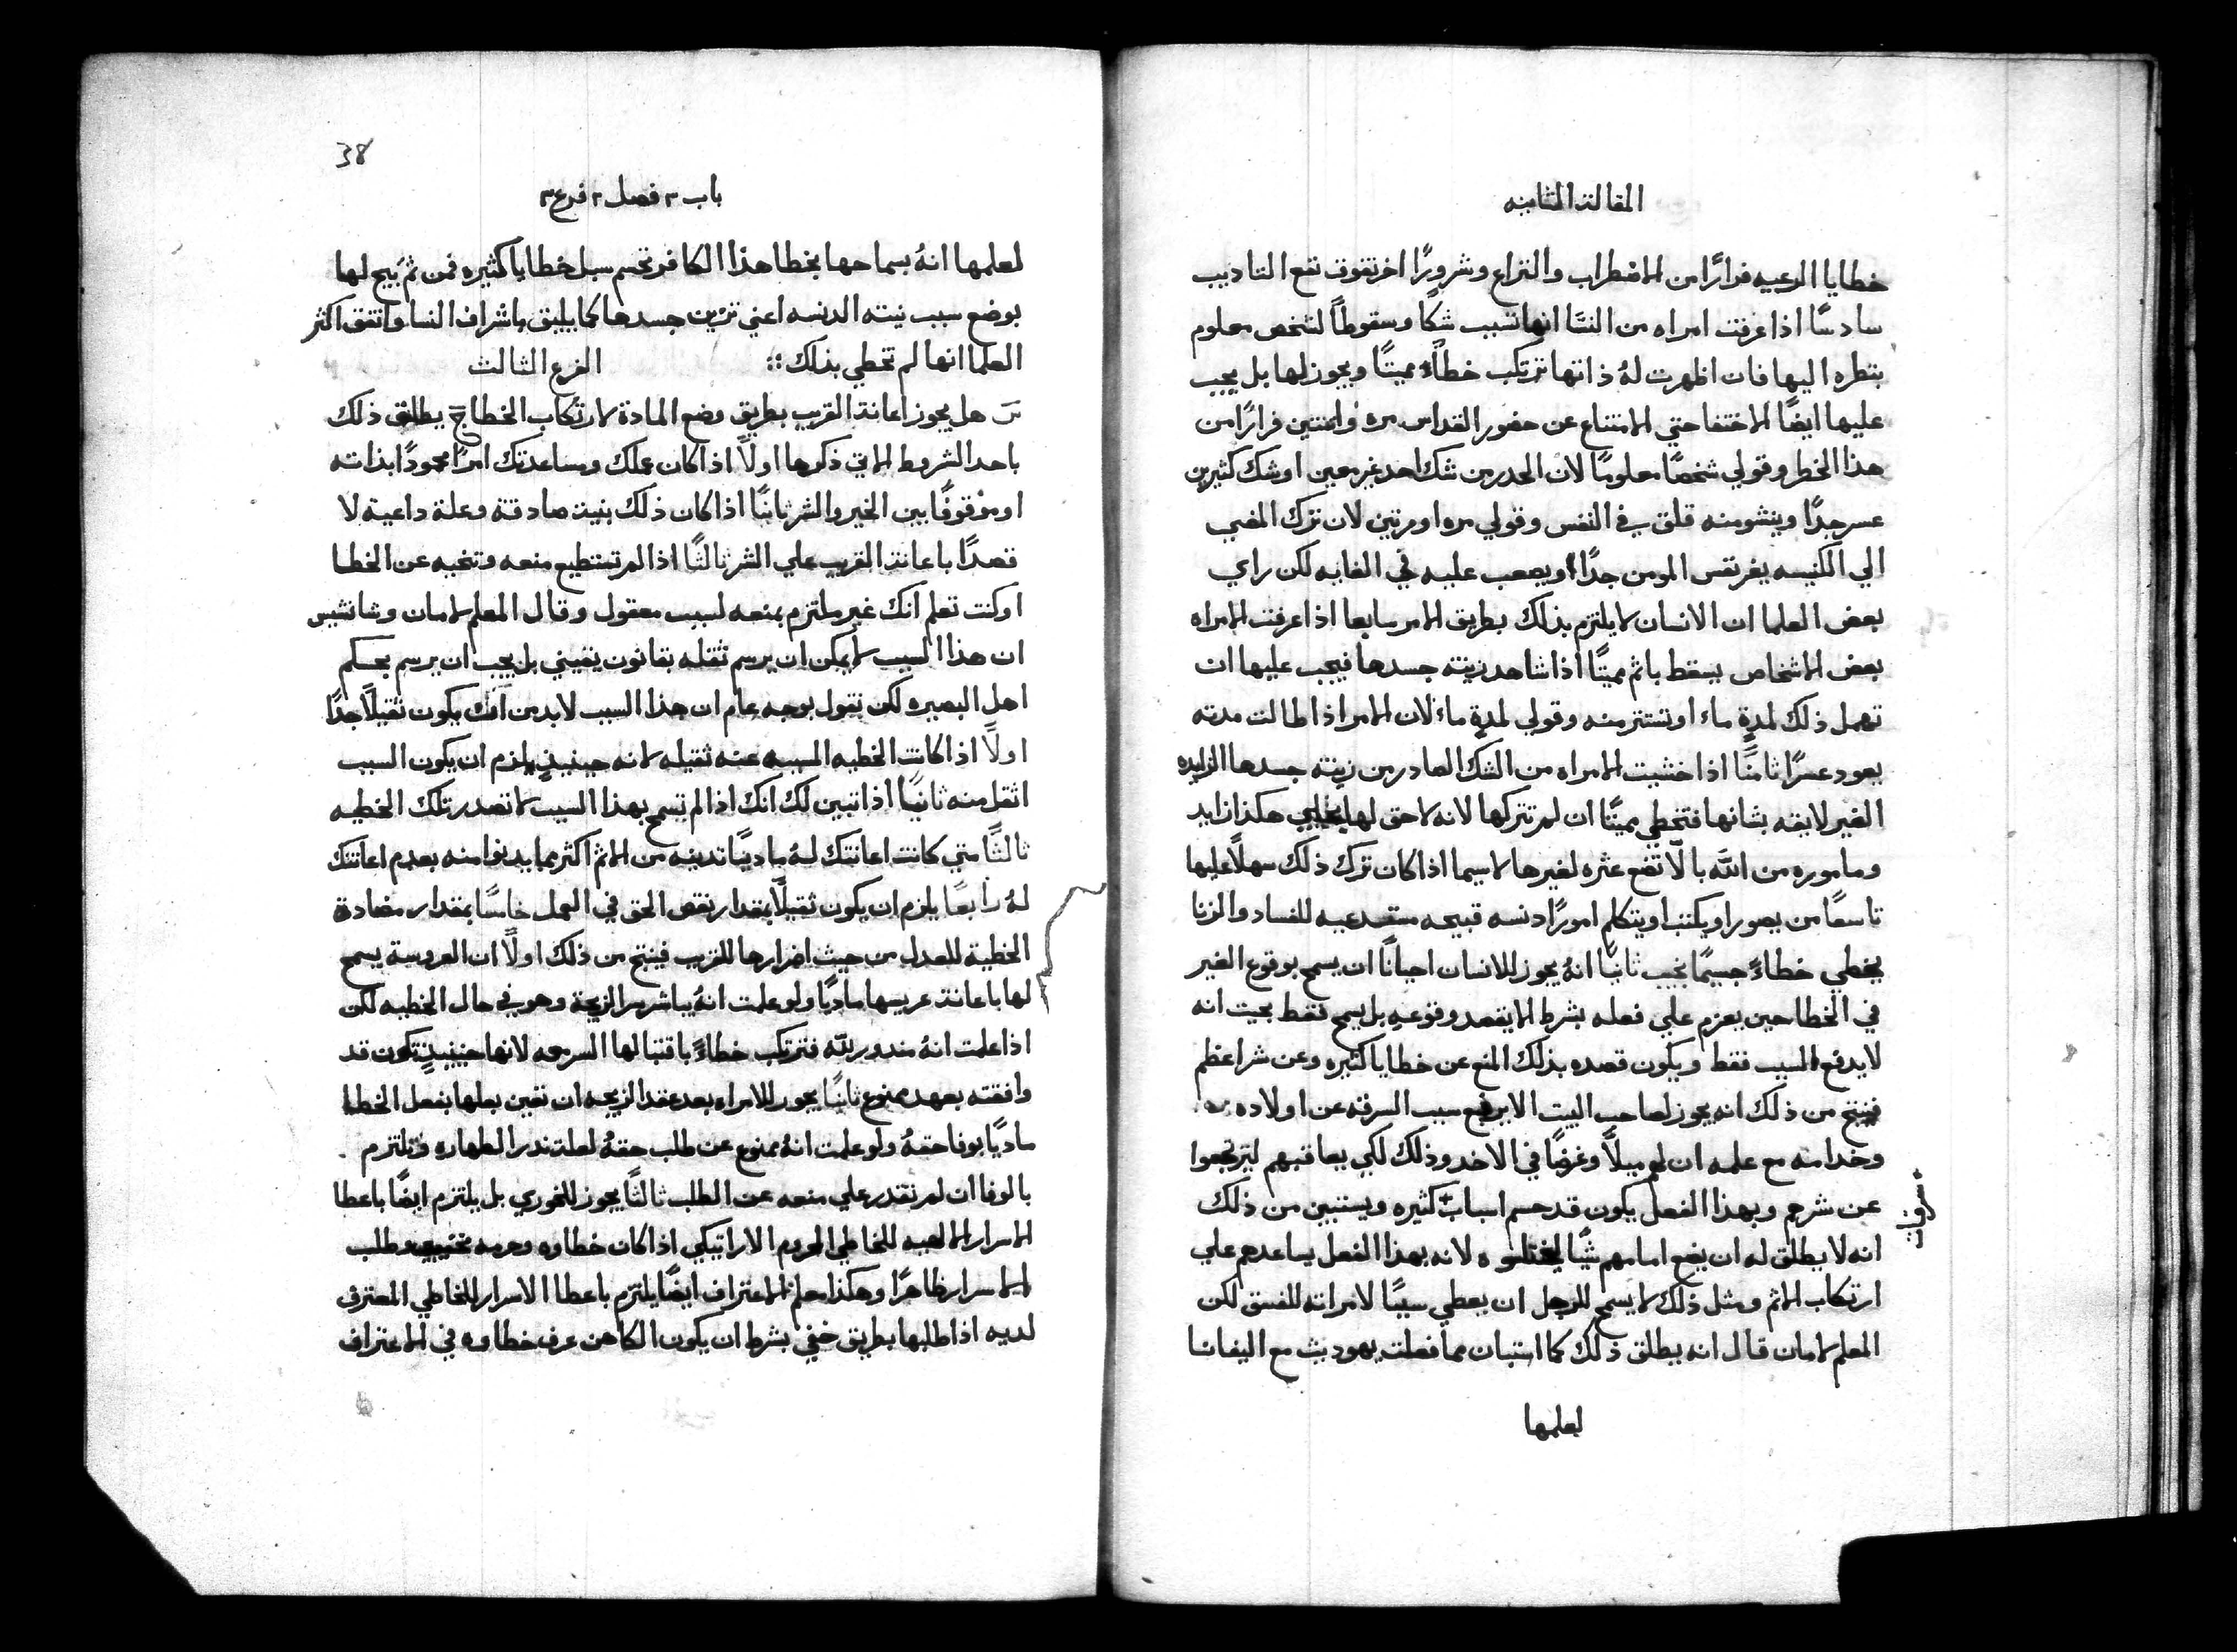 المقالة الثامنه
خطايا الرعيه فرارًا من الاضطراب والنزاع وشرورًا اخر تفوق نفع التاديب
سادسًا اذا عرفت امراه من النسَا انها تسبب شكًا وسقوطاً لشخص معلوم
بنظره اليها فان اظهرت لهُ ذاتها ترتكب خطاءً مميتًا ويجوز لها بل يجب
عليها ايضًا الاختفا حتي الامتناع عن حضور القداس مره واثنتين فرارًا من
هذا الخطر وقولي شخصًا معلومًا لان الحدر من شك احد غير معين او شك كثيرين
عسر جدًا وينشو منه قلق في النفس وقولي مره او مرتين لان ترك المضي
الي الكنيسه يضر نفس المومن جدًا ويصعب عليه في الغايه لكن راي
بعض العلما ان الانسان لا يلتزم بذلك بطريق الامر سابعا اذا عرفت الامراه
بعض الاشخاص يسقط باثم مميتًا اذا شاهد زينته جسدها فيجب عليها ان
تهمل ذلك لمدةٍ ماء او تستتر منه وقولي لمدةٍ ماء لان الامر اذا طالت مدته
يعود عسرًا ثامنًا اذا خشيت الامراه من الشك الصادر من زينته جسدها الزايده
الغير لايقه بشانها فتخطي مميتًا ان لم تتركها لانه لا حق لها هكذا زايد
وماموره من اللَّه بالّا تضع عثره لغيرها لاسيما اذا كان ترك ذلك سهلاً عليها
تاسعًا من يصور او يكتب او يتكلم امورًا دنسه قبيحه مستدعيه للفساد والزنا
يخطي خطاءً جسيمًا يجب ثانيًا انهُ يجوز للانسان احيانًا ان يسمح بوقوع الغير
في الخطا حين يعزم علي فعله بشرط الا يقصد وقوعه بل يسمح فقط بحيث انه
لا يدفع السبب فقط ويكون قصده بذلك المنع عن خطايا كثيره وعن شر اعظم
فينتج من ذلك انه يجوز لصاحب البيت الا يرفع سبب السرقه عن اولاده
وخدامه مع علمه ان لهم ميلاً وغرضًا في الاخد وذلك لكي يعاقبهم ليرتجعوا
عن شرهم وبهذا الفعل يكون قد حسم اسباب كثيره ويستبين من ذلك
سرقات
انه لا يطلق له ان يضع امامهم شيًا ليختلسوه لانه بهذا الفعل يساعدهم علي
ارتكاب الاثم ومثل ذلك لا يسمح للرجل ان يعطي سببًا لامراته للفسق لكن
المعلم لامان قال انه يطلق ذلك كما استبان مما فعلت يهوديث مع اليفانا
لعلمها
38
باب ٣ فصل ٢ فرع ٣
لعلمها انهُ بسماحها بخطا هذا الكافر تحسم سبل خطايا كثيره فمن ثم يبيح لها
بوضع سبب نيته الدنسه اعني تزين جسدها كما يليق باشراف النسا واتفق اكثر
العلما انها لم تخطي بذلك ؛؛ الفرع الثالث
س هل يجوز اعانة القريب بطريق وضع المادة لارتكاب الخطا ج يطلق ذلك
باحد الشروط الاتي ذكرها اولاً اذا كان عملك ومساعدتك امرًا محمودًا بذاته
او موقوفًا بين الخير والشر ثانيًا اذا كان ذلك بنيت صادقة وعلة داعية لا
قصدًا باعانة القريب علي الشر ثالثًا اذا لم تستطيع منعه وتنحيه عن الخطا
او كنت تعلم انك غير ملتزم بمنعه لسبب معقول وقال المعلم لامان وشانشيس
ان هذا السبب لا يمكن ان يرسم ثقله بقانون يقيني بل يجب ان يرسم بحكم
اهل البصيره لكن نقول بوجه عام ان هذا السبب لابد من انهُ يكون ثقيلًا جدًا
اولاً اذا كانت الخطيه المسببه عنه ثقيله لانه حينيذٍ يلزم ان يكون السبب
اثقل منه ثانيًا اذا تبين لك انك اذا لم تسمح بهذا السبب لا تصدر تلك الخطيه
ثالثًا متي كانت اعانتك لهُ ماديًا تدينه من الاثم اكثر مما يدنوا منه بعدم اعانتك
لهُ رابعًا يلزم ان يكون ثقيلاً بمقدار نقص الحق في العمل خامسًا بمقدار مضادة
الخطية للعدل من حيث اضرارها للقريب فينتج من ذلك اولاً ان العروسة يسمح
لها باعانة عريسها ماديًا ولو علمت انهُ يباشر سر الزيجة وهو في حال الخطيه لكن
اذا علمت انهُ مندور للّه فترتكب خطاءً باقتبالها السر معه لانها حينيذٍ تكون قد
وافقته بعهد ممنوع ثانيًا يجوز للامراه بعد عقد الزيجه ان تعين بعلها بفعل الخطا
ماديًا بوفا حقهُ ولو علمت انهُ ممنوع عن طلب حقهُ لعلة ندر الطهاره وتلتزم
بالوفا ان لم تقدر علي منعه عن الطلب ثالثًا يجوز للخوري بل يلتزم ايضًا باعطا
الاسرار الالهيه للخاطي المحروم الاراتيكي اذا كان خطاوه وحرمه وطلب
الاسرار ظاهرًا وهكذا معلم الاعتراف ايضًا يلتزم باعطا الاسرار للخاطي المعترف
لديه اذا طلبها بطريق خفي بشرط ان يكون الكاهن عرف خطاوه في الاعتراف